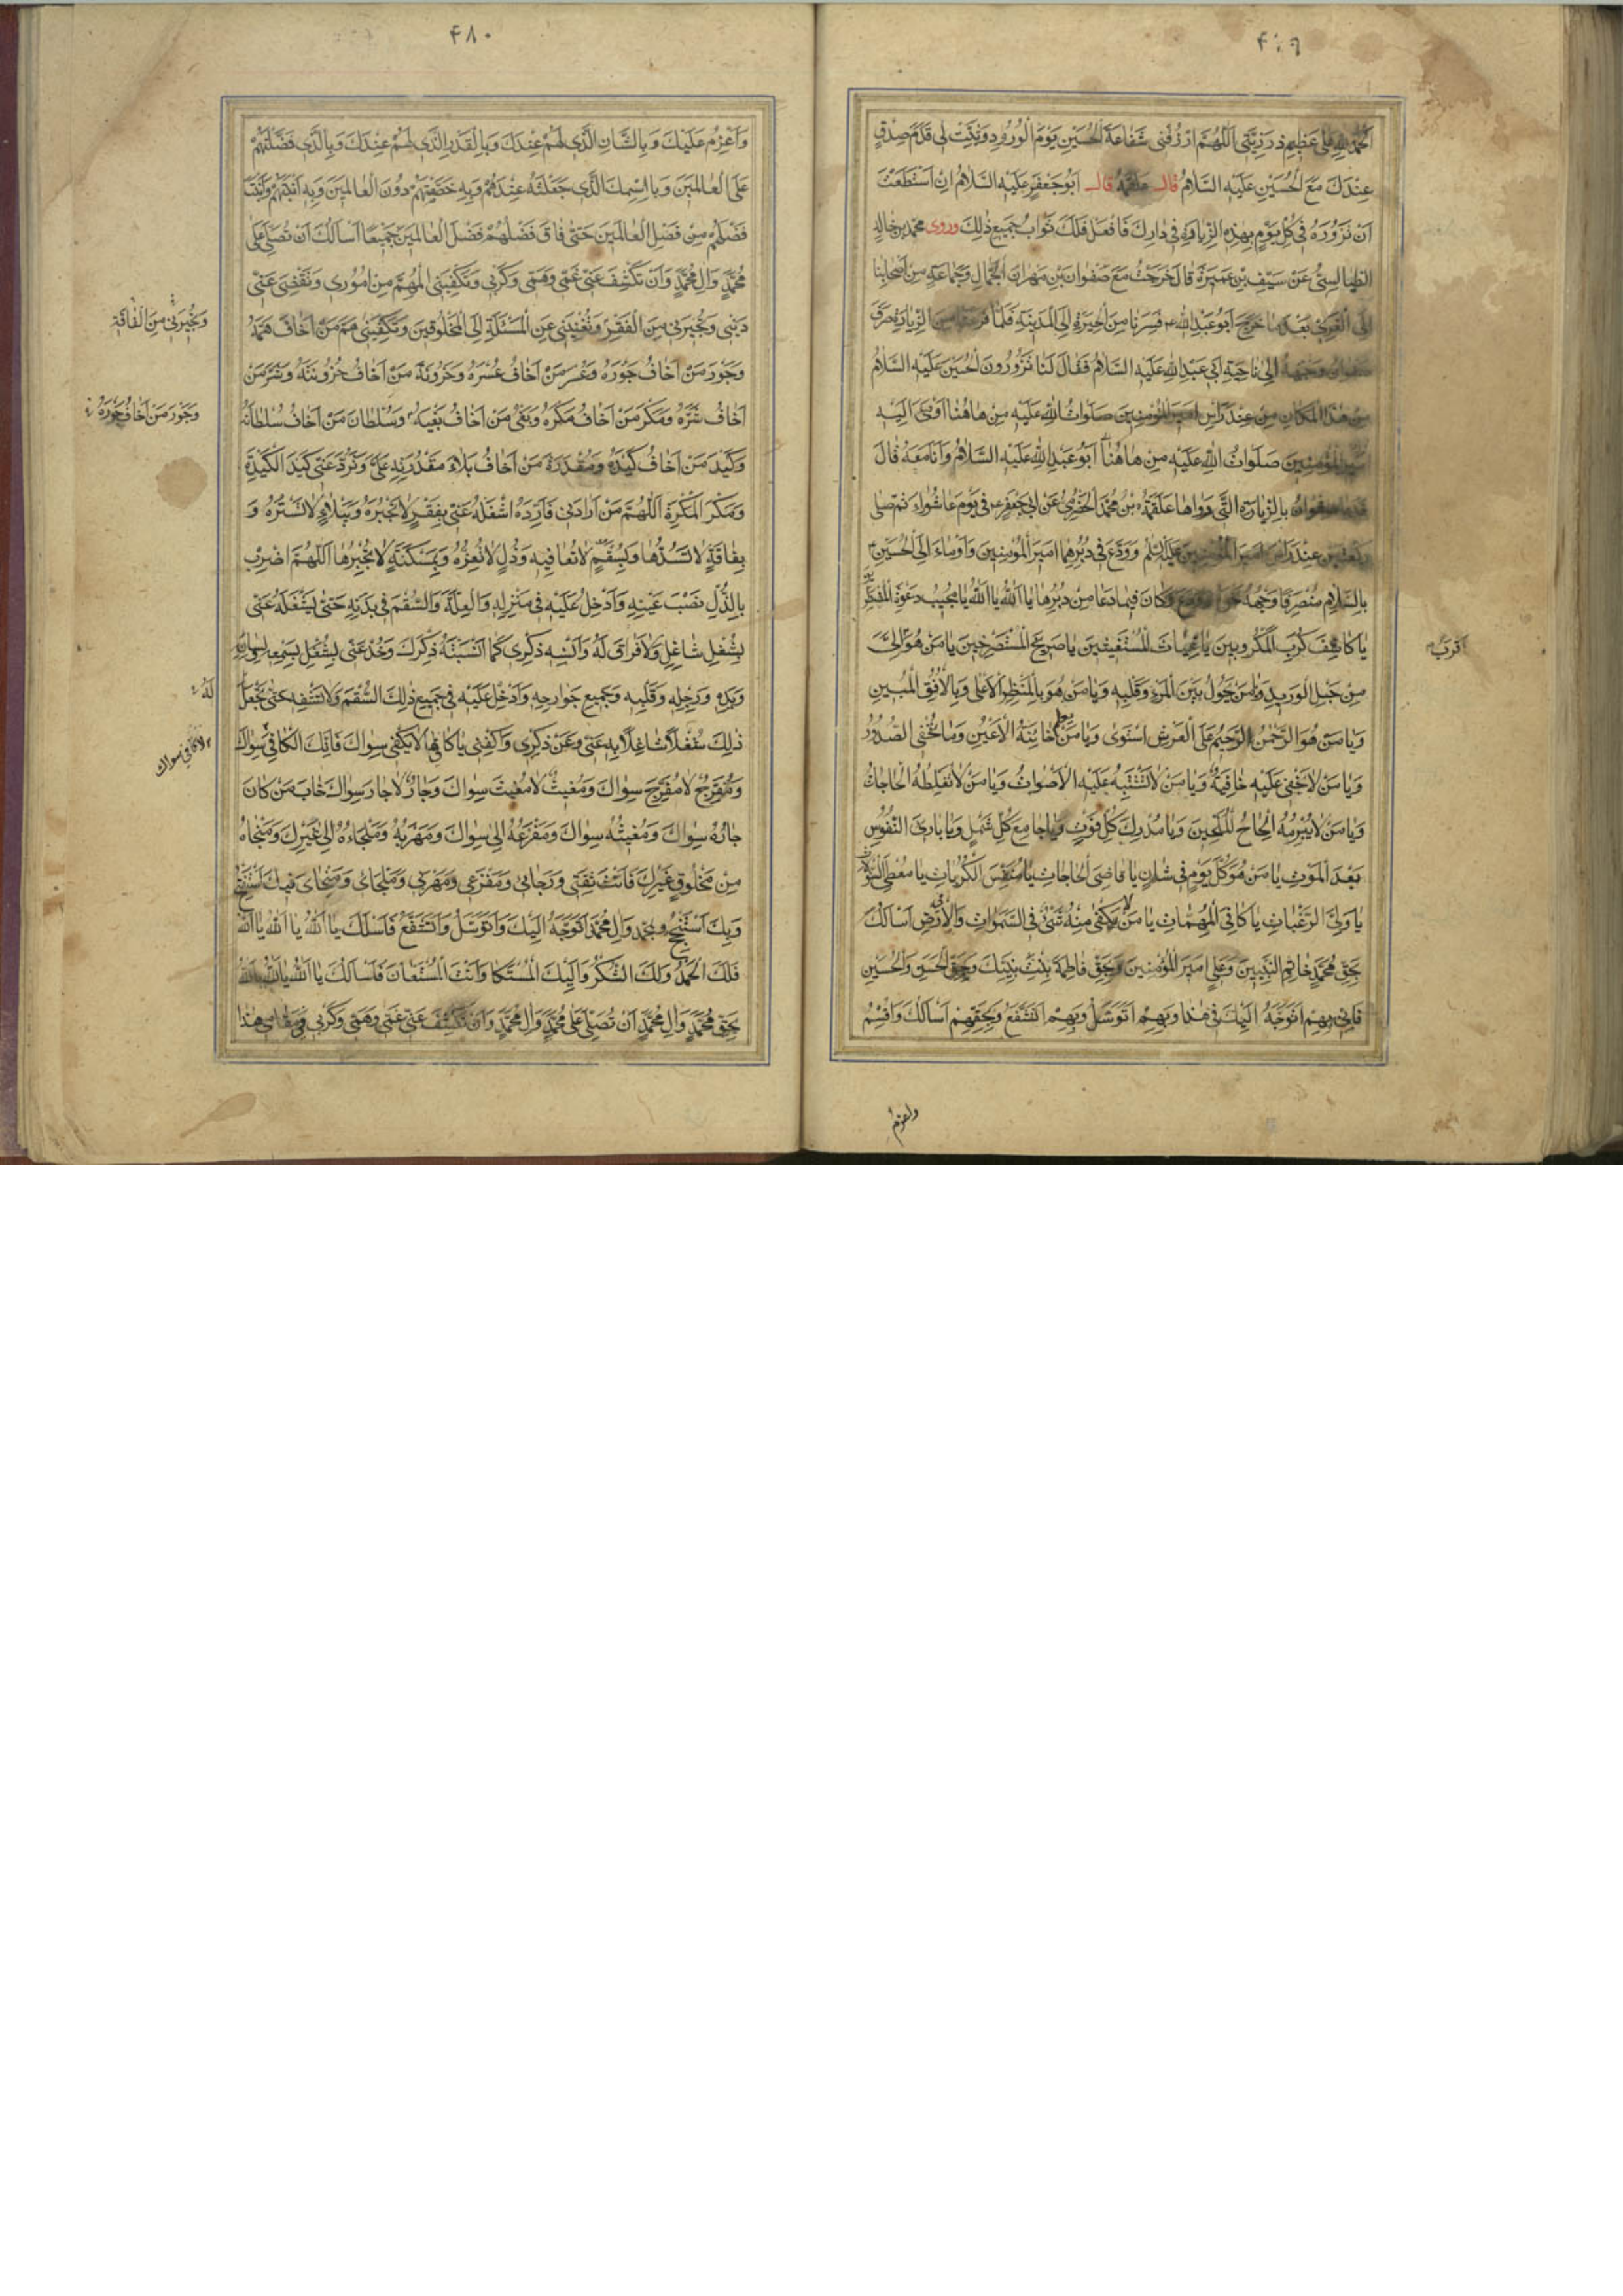 ۴۷۹
اَلْحَمْدُ لِلّٰهِ عَلىٰ عَظيمِ رَزِيَّتى اَللّٰهُمَّ ارْزُقْنى شَفاعَةَ الْحُسَيْنِ يَوْمَ الْوُرُودِ وَثَبِّتْ لى قَدَمَ صِدْقٍ
عِنْدَكَ مَعَ الْحُسَيْنِ عَلَيْهِ السَّلامُ قال علقمة قال اَبُو جَعْفَرٍ عَلَيْهِ السَّلامُ اِنْ اسْتَطَعْتَ
اَنْ تَزُورَهُ فى كُلِّ يَوْمٍ بِهٰذِهِ الزِّيارَةِ فى دارِكَ فَافْعَلْ فَلَكَ ثَوابُ جَميعِ ذٰلِكَ وروى محمد بن خالد
الطيالِسىُّ عَنْ سَيْفِ بْنِ عَميرَةَ قالَ خَرَجْتُ مَعَ صَفْوانَ بْنِ مِهْرانَ الْجَمّالِ وَجَماعَةٍ مِنْ اَصْحابِنا
اِلَى الْغَرِىِّ بَعْدَ ما خَرَجَ اَبُو عَبْدِ اللهِ ع فَسِرْنا مِنَ الْحيرَةِ اِلَى الْمَدينَةِ فَلَمّا فَرَغْنا مِنَ الزِّيارَةِ صَرَفَ
صَفْوانُ وَجْهَهُ اِلىٰ ناحِيَةِ اَبى عَبْدِ اللهِ عَلَيْهِ السَّلامُ فَقالَ لَنا تَزُورُونَ الْحُسَيْنَ عَلَيْهِ السَّلامُ
مِنْ هٰذَا الْمَكانِ مِنْ عِنْدِ رَأْسِ اَميرِ الْمُؤْمِنينَ صَلَواتُ اللهِ عَلَيْهِ مِنْ هاهُنا اَوْمَىٰ اِلَيْهِ
اَميرِ الْمُؤْمِنينَ صَلَواتُ اللهِ عَلَيْهِ مِنْ هاهُنا اَبُو عَبْدِ اللهِ عَلَيْهِ السَّلامُ وَاَنَا مَعَهُ قالَ
فَدَعا صَفْوانُ بِالزِّيارَةِ الَّتى رَواها عَلْقَمَةُ بْنُ مُحَمَّدٍ الْحَضْرَمِىُّ عَنْ اَبى جَعْفَرٍ ع فى يَوْمِ عاشُوراءَ ثُمَّ صَلّىٰ
رَكْعَتَيْنِ عِنْدَ رَأْسِ اَميرِ الْمُؤْمِنينَ عَلَيْهِ السَّلامُ وَوَدَّعَ فى دُبُرِهِما اَميرَ الْمُؤْمِنينَ وَاَوْماءَ اِلَى الْحُسَيْنِ ع
بِالسَّلامِ مُنْصَرِفًا وَجْهَهُ نَحْوَهُ وَوَدَّعَ فَكانَ فيما دَعا مِنْ دُبُرِها يا اَللهُ يا اَللهُ يا مُجيبَ دَعْوَةِ الْمُضْطَرّينَ
يا كاشِفَ كُرَبِ الْمَكْرُوبينَ يا غِياثَ الْمُسْتَغيثينَ يا صَريخَ الْمُسْتَصْرِخينَ يا مَنْ هُوَ اِلَىَّ
اَقْرَبُ
مِنْ حَبْلِ الْوَريدِ وَيا مَنْ يَحُولُ بَيْنَ الْمَرْءِ وَقَلْبِهِ وَيا مَنْ هُوَ بِالْمَنْظَرِ الْاَعْلىٰ وَبِالْاُفُقِ الْمُبينِ
وَيا مَنْ هُوَ الرَّحْمٰنُ الرَّحيمُ عَلَى الْعَرْشِ اسْتَوىٰ وَيا مَنْ يعلم خائِنَةَ الْاَعْيُنِ وَما تُخْفِى الصُّدُورُ
وَيا مَنْ لا يَخْفىٰ عَلَيْهِ خافِيَةٌ وَيا مَنْ لا تَشْتَبِهُ عَلَيْهِ الْاَصْواتُ وَيا مَنْ لا تُغَلِّطُهُ الْحاجاتُ
وَيا مَنْ لا يُبْرِمُهُ اِلْحاحُ الْمُلِحّينَ وَيا مُدْرِكَ كُلِّ فَوْتٍ وَيا جامِعَ كُلِّ شَمْلٍ وَيا بارِئَ النُّفُوسِ
بَعْدَ الْمَوْتِ يا مَنْ هُوَ كُلَّ يَوْمٍ فى شَأْنٍ يا قاضِىَ الْحاجاتِ يا مُنَفِّسَ الْكُرُباتِ يا مُعْطِىَ السُّؤُلاتِ
يا وَلِىَّ الرَّغَباتِ يا كافِىَ الْمُهِمّاتِ يا مَنْ يَكْفى مِنْهُ شَىْءٌ فِى السَّمٰواتِ وَالْاَرْضِ اَسْأَلُكَ
بِحَقِّ مُحَمَّدٍ خاتِمِ النَّبِيّينَ وَعَلِىٍّ اَميرِ الْمُؤْمِنينَ وَبِحَقِّ فاطِمَةَ بِنْتِ نَبِيِّكَ وَبِحَقِّ الْحَسَنِ وَالْحُسَيْنِ
فَاِنّى بِهِمْ اَتَوَجَّهُ اِلَيْكَ فى مَقامى هٰذا وَبِهِمْ اَتَوَسَّلُ وَبِهِمْ اَتَشَفَّعُ وَبِحَقِّهِمْ اَسْأَلُكَ وَاُقْسِمُ
واعزم
۴۸۰
وَاَعْزِمُ عَلَيْكَ وَبِالشَّأْنِ الَّذى لَهُمْ عِنْدَكَ وَبِالْقَدْرِ الَّذى لَهُمْ عِنْدَكَ وَبِالَّذى فَضَّلْتَهُمْ
عَلَى الْعالَمينَ وَبِاسْمِكَ الَّذى جَعَلْتَهُ عِنْدَهُمْ وَبِهِ خَصَصْتَهُمْ دُونَ الْعالَمينَ وَبِهِ اَبَنْتَهُمْ وَاَبَنْتَ
فَضْلَهُمْ مِنْ فَضْلِ الْعالَمينَ حَتّىٰ فاقَ فَضْلُهُمْ فَضْلَ الْعالَمينَ جَميعًا اَسْأَلُكَ اَنْ تُصَلِّىَ عَلىٰ
مُحَمَّدٍ وَآلِ مُحَمَّدٍ وَاَنْ تَكْشِفَ عَنّى غَمّى وَهَمّى وَكَرْبى وَتَكْفِيَنِى الْمُهِمَّ مِنْ اُمُورى وَتَقْضِىَ عَنّى
دَيْنى وَتُجيرَنى مِنَ الْفَقْرِ وَتُغْنِيَنى عَنِ الْمَسْئَلَةِ اِلَى الْمَخْلُوقينَ وَتَكْفِيَنى هَمَّ مَنْ اَخافُ هَمَّهُ
وَتُجيرَنى مِنَ الْفاقَةِ
وَجَوْرَ مَنْ اَخافُ جَوْرَهُ وَعُسْرَ مَنْ اَخافُ عُسْرَهُ وَحُزُونَةَ مَنْ اَخافُ حُزُونَتَهُ وَشَرَّ مَنْ
اَخافُ شَرَّهُ وَمَكْرَ مَنْ اَخافُ مَكْرَهُ وَبَغْىَ مَنْ اَخافُ بَغْيَهُ وَسُلْطانَ مَنْ اَخافُ سُلْطانَهُ
وَجَوْرَ مَنْ اَخافُ جَوْرَهُ
وَكَيْدَ مَنْ اَخافُ كَيْدَهُ وَمَقْدُرَةَ مَنْ اَخافُ بَلاءَ مَقْدُرَتِهِ عَلَىَّ وَتَرُدَّ عَنّى كَيْدَ الْكَيَدَةِ
وَمَكْرَ الْمَكَرَةِ اَللّٰهُمَّ مَنْ اَرادَنى فَاَرِدْهُ اشْغَلْهُ عَنّى بِفَقْرٍ لا تَجْبُرُهُ وَبَلاءٍ لا تَسْتُرُهُ وَ
بِفاقَةٍ لا تَسُدُّها وَبِسُقْمٍ لا تُعافيهِ وَذُلٍّ لا تُعِزُّهُ وَبِمَسْكَنَةٍ لا تَجْبُرُها اَللّٰهُمَّ اضْرِبْ
بِالذُّلِّ نَصْبَ عَيْنِهِ وَاَدْخِلْ عَلَيْهِ فى مَنْزِلِهِ وَالْعِلَّةَ وَالسُّقْمَ فى بَدَنِهِ حَتّىٰ يَشْغَلَهُ عَنّى
بِشُغْلٍ شاغِلٍ وَلا فَراغَ لَهُ وَاَنْسِهِ ذِكْرى كَما اَنْسَيْتَهُ ذِكْرَكَ وَخُذْ عَنّى بِشُغْلٍ بِسَمْعِهِ وَلِسانِهِ
وَيَدِهِ وَرِجْلِهِ وَقَلْبِهِ وَجَميعِ جَوارِحِهِ وَاَدْخِلْ عَلَيْهِ فى جَميعِ ذٰلِكَ السُّقْمَ وَلا تَشْفِهِ حَتّىٰ تَجْعَلَ
لَهُ
ذٰلِكَ شُغْلًا شاغِلًا بِهِ عَنّى وَعَنْ ذِكْرى وَاكْفِنى يا كافِىَ ما لا يَكْفى سِواكَ فَاِنَّكَ الْكافى سِواكَ
لا كافى سواك
وَمُفَرِّجٌ لا مُفَرِّجَ سِواكَ وَمُغيثٌ لا مُغيثَ سِواكَ وَجارٌ لا جارَ سِواكَ خابَ مَنْ كانَ
جارُهُ سِواكَ وَمُغيثُهُ سِواكَ وَمَفْزَعُهُ اِلىٰ سِواكَ وَمَهْرَبُهُ وَمَلْجَاءُهُ اِلىٰ غَيْرِكَ وَمَنْجاهُ
مِنْ مَخْلُوقٍ غَيْرِكَ فَاَنْتَ ثِقَتى وَرَجائى وَمَفْزَعى وَمَهْرَبى وَمَلْجَاىَ وَمَنْجاىَ فَبِكَ اَسْتَفْتِحُ
وَبِكَ اَسْتَنْجِحُ وَبِمُحَمَّدٍ وَآلِ مُحَمَّدٍ اَتَوَجَّهُ اِلَيْكَ وَاَتَوَسَّلُ وَاَتَشَفَّعُ فَاَسْئَلُكَ يا اَللهُ يا اَللهُ يا اَللهُ
فَلَكَ الْحَمْدُ وَلَكَ الشُّكْرُ وَاِلَيْكَ الْمُشْتَكىٰ وَاَنْتَ الْمُسْتَعانُ فَاَسْأَلُكَ يا اَللهُ يا اَللهُ يا اَللهُ
بِحَقِّ مُحَمَّدٍ وَآلِ مُحَمَّدٍ اَنْ تُصَلِّىَ عَلىٰ مُحَمَّدٍ وَآلِ مُحَمَّدٍ وَاَنْ تَكْشِفَ عَنّى غَمّى وَهَمّى وَكَرْبى فى مَقامى هٰذا